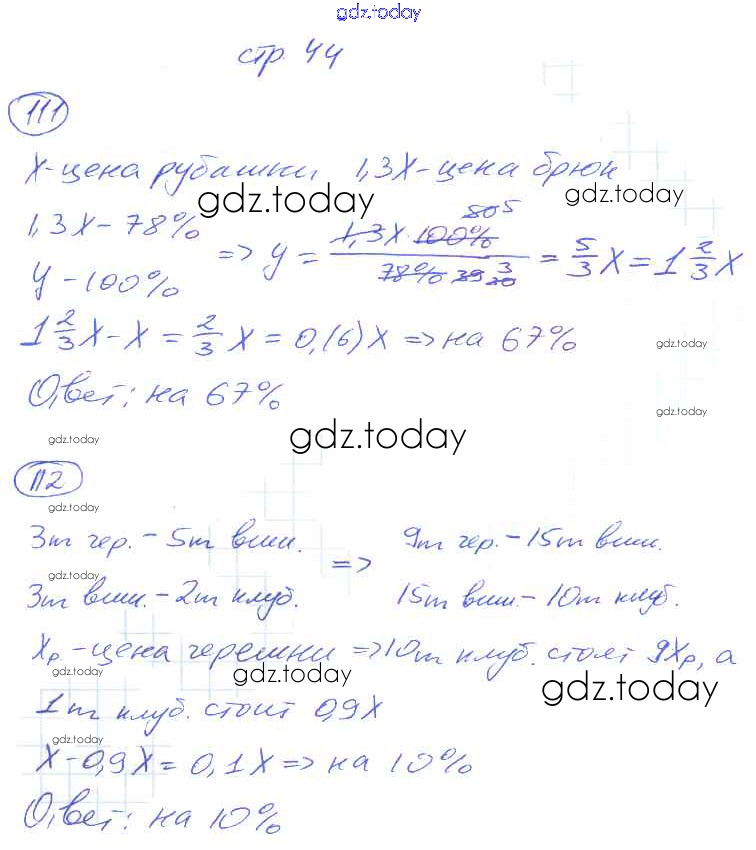 gdz.today
стр. 44
111
X-цена рубашки, 1,3X-цена брюк
gdz.today gdz.today
1,3X - 78%
y - 100%
=> y = 1,3X · 100% 50 5 / 78% 39 30 3 = 5/3 X = 1 2/3 X
1 2/3 X - X = 2/3 X = 0,(6)X => на 67%
gdz.today
Ответ: на 67%
gdz.today
gdz.today gdz.today
112
gdz.today
3т чер. - 5т виш. => 9т чер. - 15т виш.
gdz.today
3т виш. - 2т клуб. 15т виш. - 10т клуб.
Xр - цена черешни => 10т клуб. стоят 9Xр, а
gdz.today gdz.today gdz.today
1т клуб. стоит 0,9X
gdz.today
X - 0,9X = 0,1X => на 10%
gdz.today
Ответ: на 10%